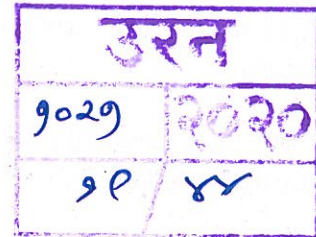 उरन
१०२१ २०२०
१९ / ४४